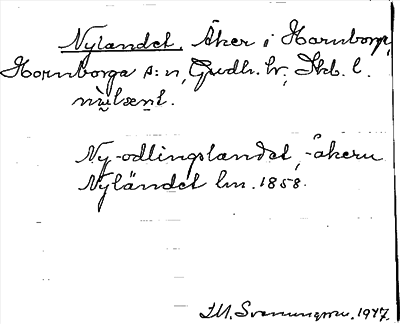 Nylandet. Åker i Hornborga,
Hornborga s:n, Gudh. hd, Skb. l.
nỳlænt.
Ny-odlingslandet, -åkern
Nyländet lm. 1858.
J.M. Svenungsson. 1947.